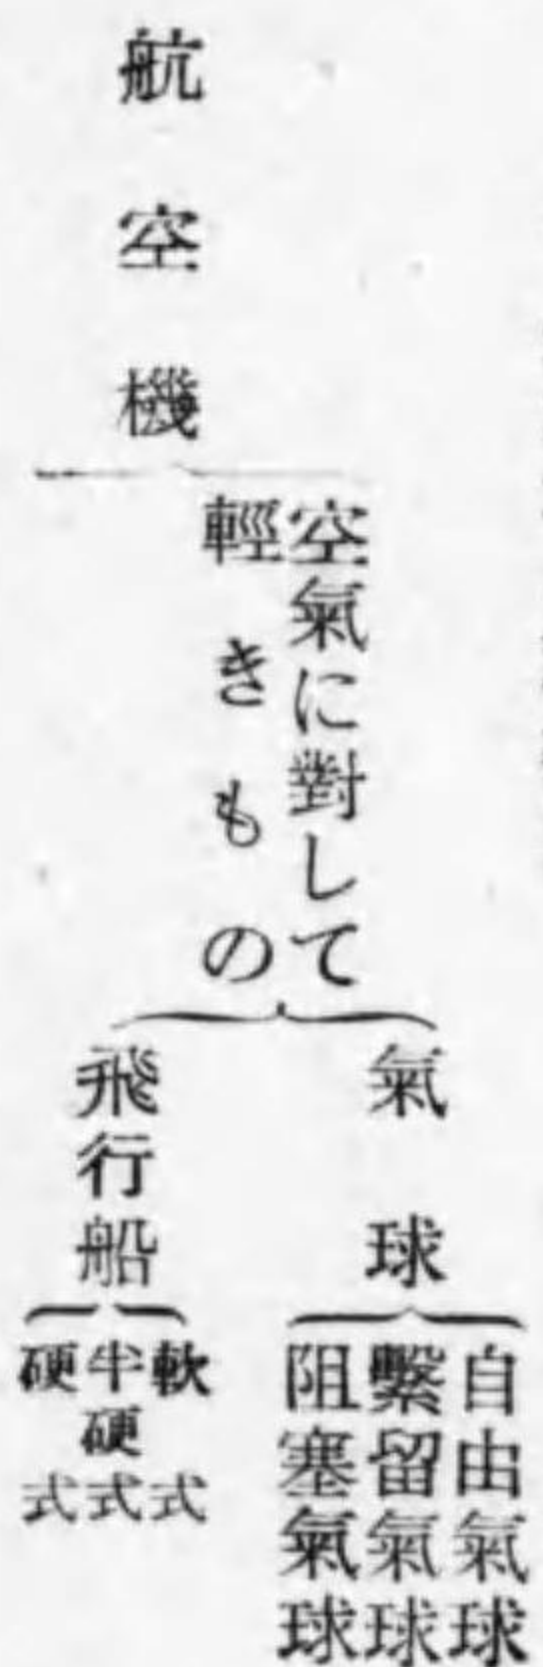 航空機
空氣に對して
輕きもの
氣球
自由氣球
繫留氣球
阻塞氣球
飛行船
軟式
半硬式
硬式